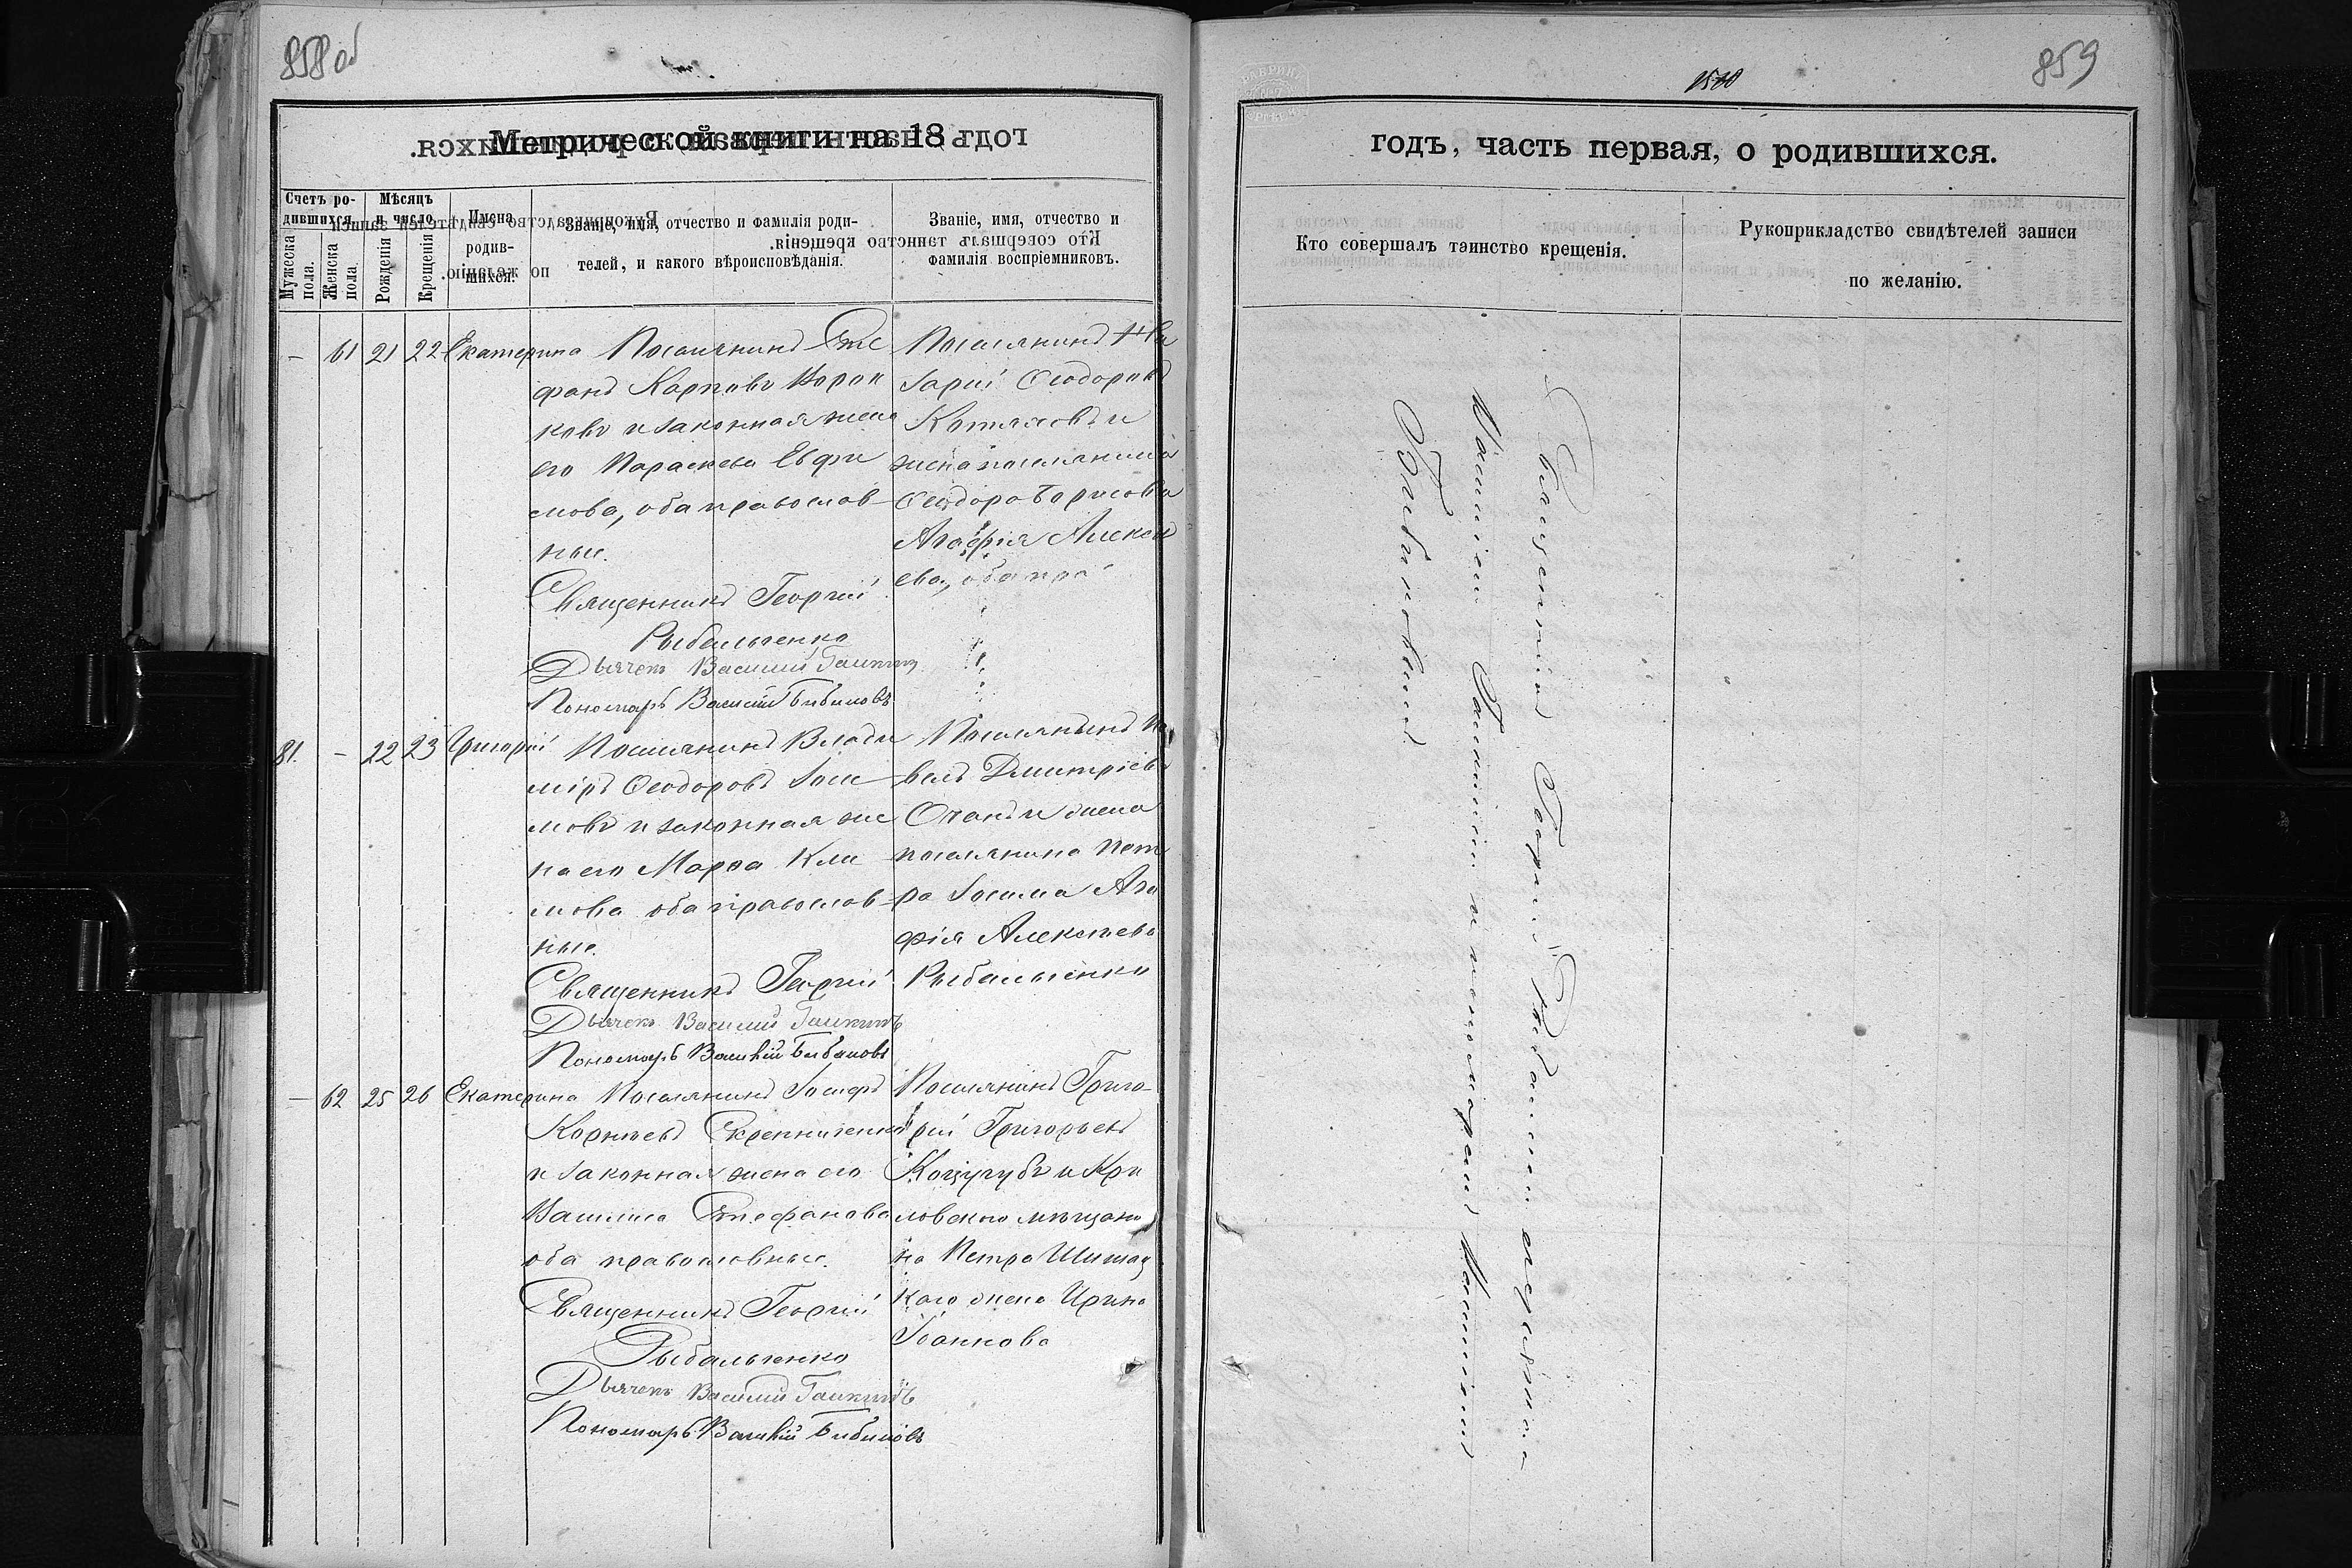 858 об
Метрической книги на 18
Счетъ ро-
дившихся.
Мѣсяцъ
и число
Имена
родив-
шихся.
Званіе, имя, отчество и фамилія роди-
телей, и какого вѣроисповѣданія.
Званіе, имя, отчество и
фамилія воспріемниковъ.
Мужеска
пола.
Женска
пола
Рожденія
Крещенія
— 61 21 22 Екатерина
Поселянинъ Сте
фанъ Карповъ Ворон
ковъ и законная жена
его Параскева Евфи
мова, оба православ-
ные.
Священникъ Георгій
Рыбальченко
Дьячекъ Василій Галкинъ
Пономарь Василій Бибиковъ
Поселянинъ
Ѳеодоровъ
и
жена поселянина
Ѳеодора Борисова
Агафія Алексѣ
ева, оба пра
81. — 22 23 Григорій
Поселянинъ Влади
міръ Ѳеодоровъ
и законная же
на его Марѳа Кли
мова оба православ-
ные.
Священникъ Георгій Рыбальченко
Дьячекъ Василій Галкинъ
Пономарь Василій Бибиковъ
Поселянинъ Па
велъ Дмитріевъ
и жена
поселянина Пет
ра Агафія Алексѣева
— 62 25 26 Екатерина
Поселянинъ Іосифъ
Корнѣевъ
и законная жена его
Василиса Стефанова
оба православные.
Священникъ Георгій
Рыбальченко
Дьячекъ Василій Галкинъ
Пономарь Василій Бибиковъ
Поселянинъ Григо-
рій Григорьевъ
Коцугубъ и
ловскаго мѣщани
на Петра
каго жена Ирина
Іоаннова
859
годъ, часть первая, о родившихся.
Кто совершалъ таинство крещенія.
Рукоприкладство свидѣтелей записи
по желанію.
Священникъ Георгій Рыбальченко
Василіемъ Галкинымъ и пономаремъ Василіемъ
Бибиковымъ